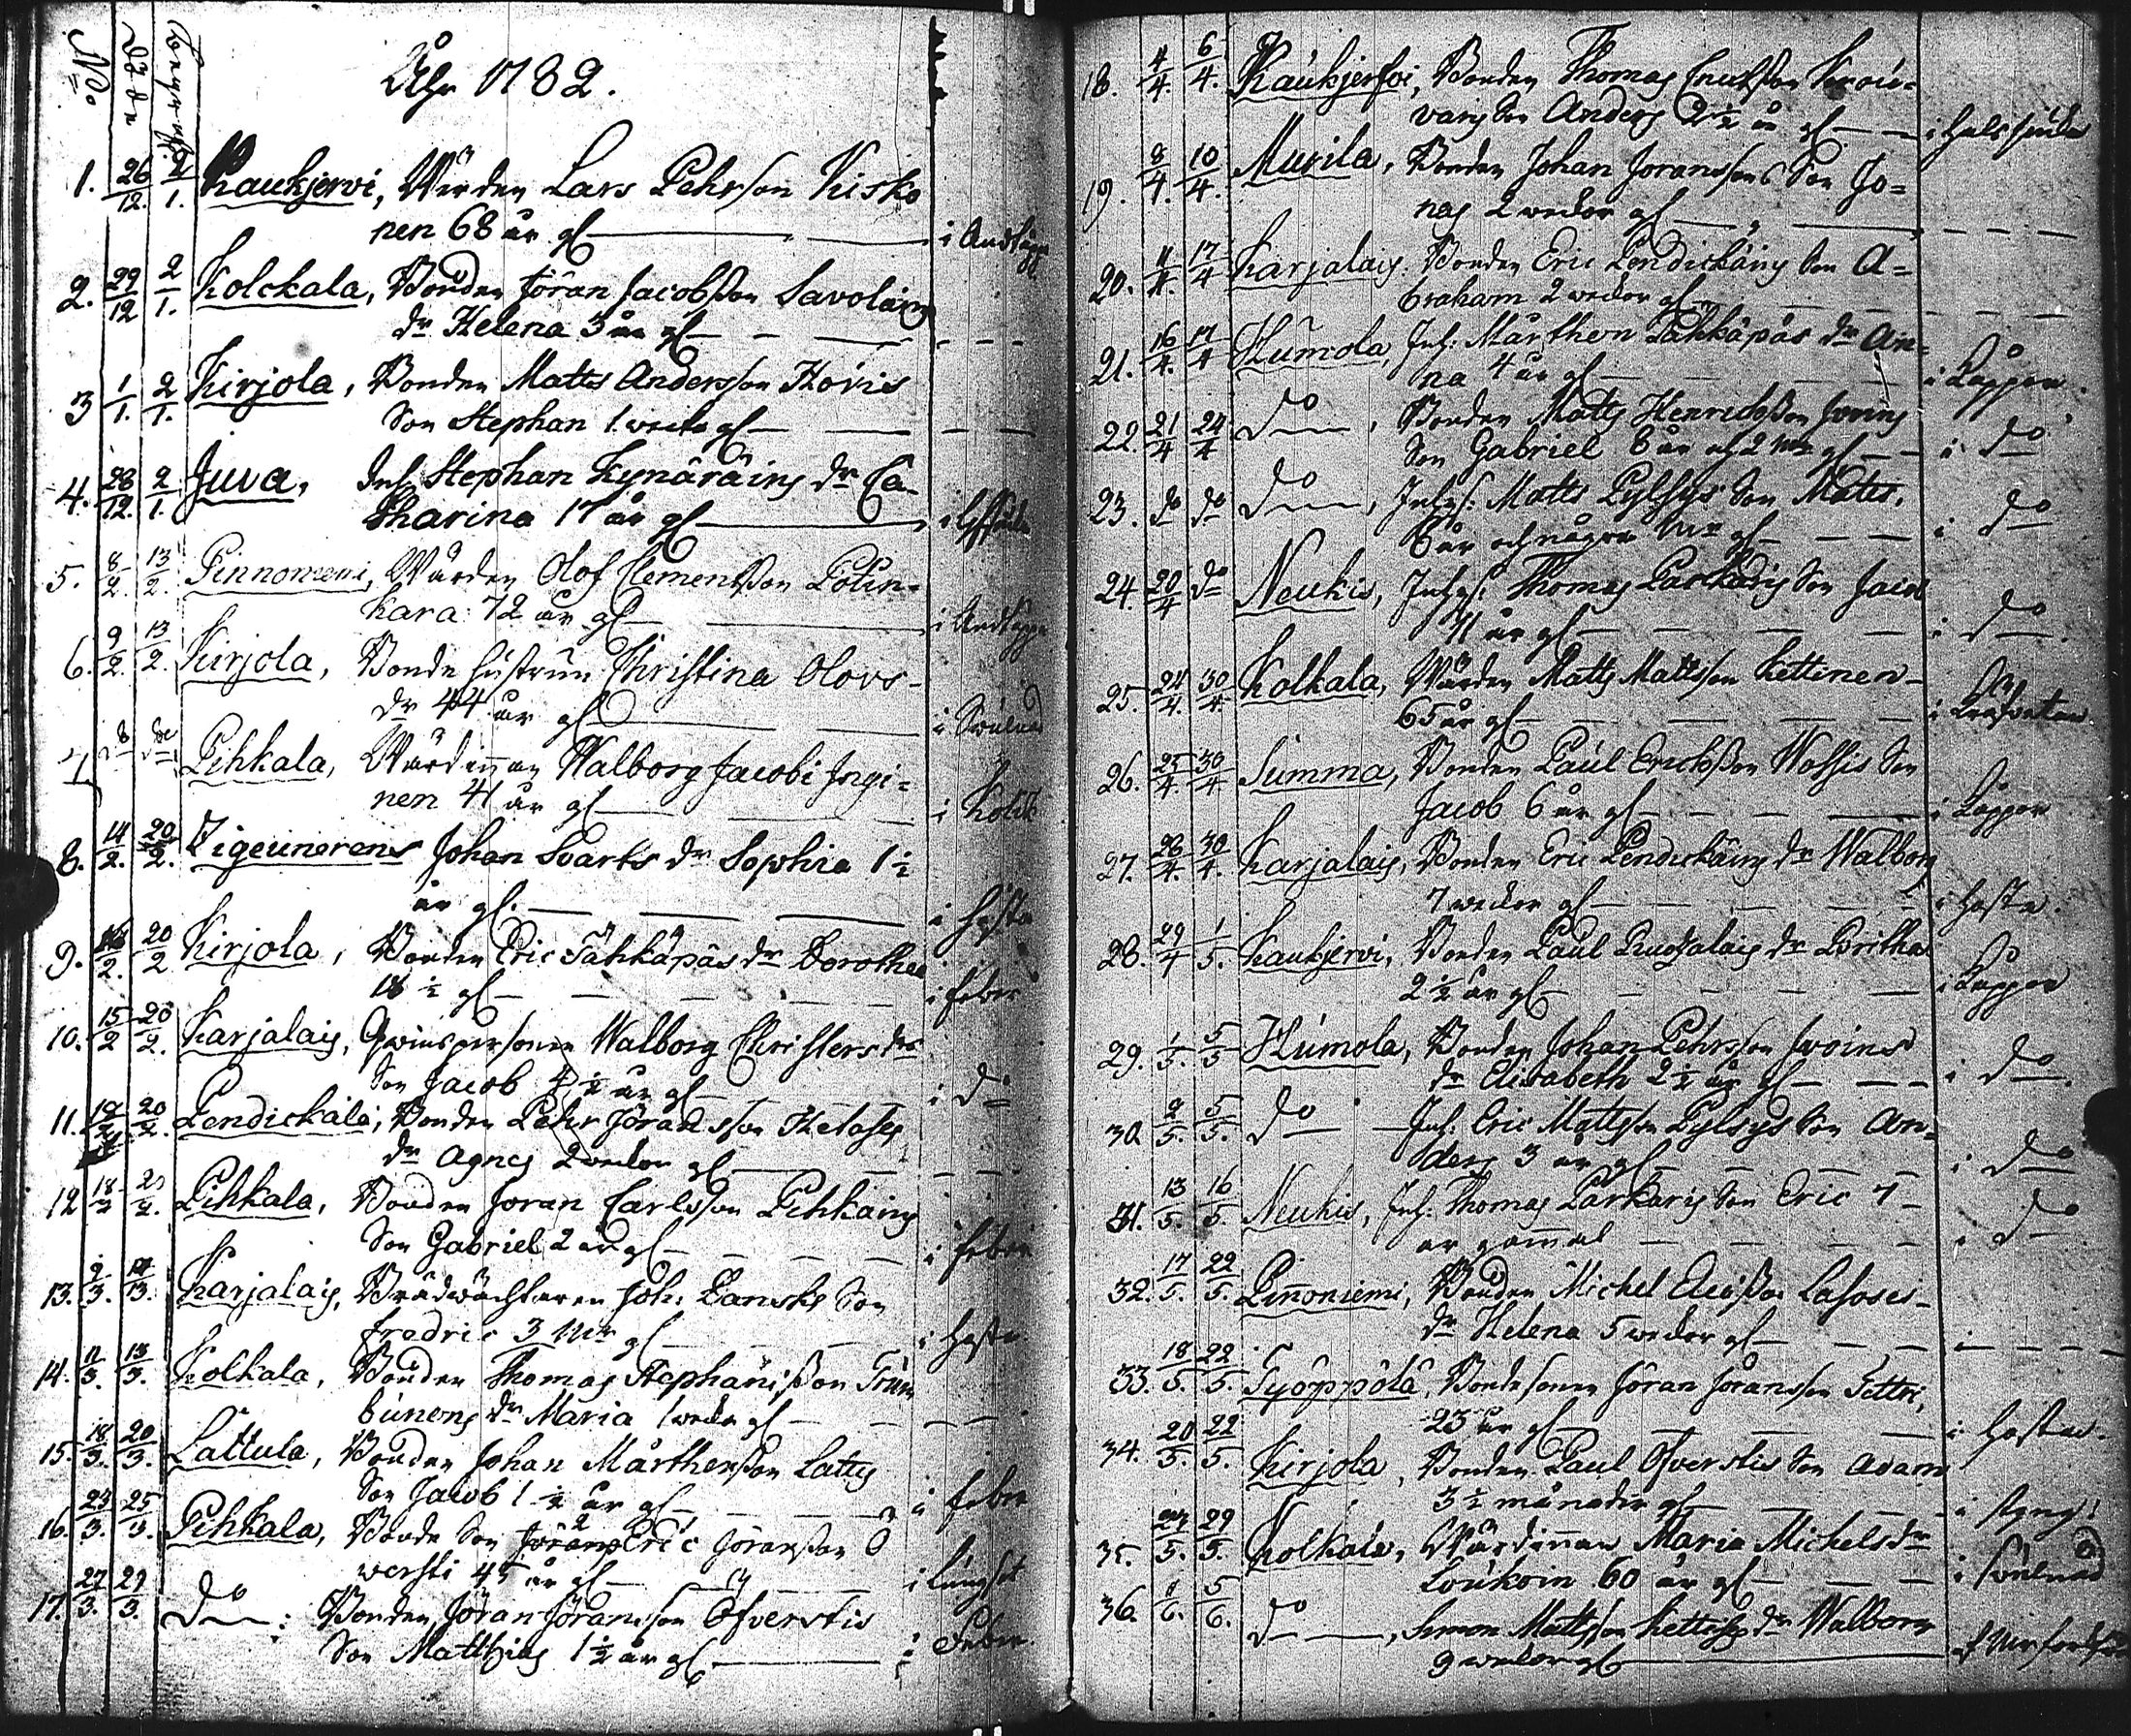 No. döde begrafne
Åhr 1782.
1. 26/12. 2/1. Kaukjervi, Wärden Lars Pehrsson Kisko
nen 68 år gl — i Andtäppa
2. 29/12 2/1. Kolckala, Bonden Jöran Jacobsson Savolains
dr Helena 3 år gl — — —
3 1/1. 2/1. Kirjola, Bonden Matts Andersson Hovis
Son Stephan 1 wecka gl — — —
4. 28/12. 2/1. Juva, Inh. Stephan Kynäräins dr Ca-
tharina 17 år gl —
5. 8/2. 13/2. Pinnoniemi, Wärden Olof Clementsson Potin-
kara 72 år gl — i Andtäppa
6. 9/2. 13/2. Kirjola, Bonde hustrun Christina Olovs-
dr 44 år gl — i Swulnad
7 do do Pihkala, Wärdinnan Walborg Jacobi Ingi-
nen 41 år gl — i Kolik
8. 14/2. 20/2. Zigeunerens Johan Svarts dr Sophia 1½
år gl. — — — i Hosta
9. 16/2. 20/2 Kirjola, Bonden Eric Tähkäpäs dr Dorothea
18 ½ gl — — — i feber
10. 15/2 20/2. Karjalais, Qwinspersonen Walborg Christersdrs
Son Jacob 4 ½ år gl — i do
11. 18/2 20/2. Pendickälä, Bonden Pehr Göransson
dr Agnes 2 weckor gl — — —
12 18/2 20/2. Pihkala, Bonden Joran Carlsson Pihkains
Son Gabriel 2 år gl — — — i feber
13. 9/3. 13. Karjalais, Brådwachtaren Joh: Danskes Son
Fredric 3 Mr gl — — i Hosta
14. 11/3. 13/3. Kolkala, Bonden Thomas Stephansson Trum
bunens dr Maria 1 wecka gl — — —
15. 18/3. 20/3. Lättula, Bonden Johan Mårthensson Lattus
Son Jacob 1 ½ år gl — — i feber
16. 23/3. 25/3. Pihkala, Bonde Son Eric Joransson Ö
wersti 45 år gl — — i Lungsot
17. 27/3. 29/3. do : Bonden Jöran Jöransson Öfverstis
Son Matthias 1 ½ år gl — i Feber.
18. 4/4. 6/4. Kaukjervi, Bonden Thomas Knutsson Krou-
vais Son Anders 2 ½ år gl — — i Halssjuka
19. 8/4. 10/4. Murila, Bonden Johan Joranssons Son Jo=
nas 2 weckor gl — — —
20. 11/4. 17/4 Karjalais. Bonden Eric Pendickäins Son A=
braham 2 weckor gl — — —
21. 16/4. 17/4 Humola, Inh: Mårthen Tähkäpäs dr An=
na 4 år gl — — i Koppor.
22. 21/4 24/4 do, Bonden Matts Henricksson
Son Gabriel 8 år och 2 Mr gl — — i do
23. do do do, Inhys: Matts Pylsys Son Matts,
6 år och några Mr gl — — — i do
24. 20/4 do Neukis, Inhys: Thomas Parkaris Son Jacob
11 år gl — — — i do.
25. 24/4. 30/4. Kolkala, Wärden Matts Mattsson Kettinen
65 år gl — — —
26. 25/4. 30/4. Summa, Bonden Paul Ericksson Son
Jacob 6 år gl — — — i Koppor
27. 26/4. 30/4. Karjalais, Bonden Eric Pendickäins dr Walborg
7 weckor gl — — — i Hosta.
28. 29/4 1/5. Kaukjervi, Bonden Paul dr Britha
2 ½ år gl — — — i Koppor
29. 1/5. 5/5 Humola, Bonden Johan Pehrsson
dr Elisabeth 2 ½ år gl — — i do.
30. 2/5. 5/5. do — Inh: Eric Mattsson Pylsys Son An=
ders 3 år gl — — — i do
31. 13/5. 16/5. Neukis, Inh: Thomas Parkaris Son Eric 7
år gammal — — — i do
32. 17/5. 22/5. Pinnoniemi, Bonden Michel
dr Helena 5 weckor gl — — —
33. 18/5. 22/5. Syöppölä, Bondesonen Jöran Jöransson Tettri,
23 år gl — — i Hosta.
34. 20/5. 22/5. Kirjola, Bonden Paul Öfverstis Son Adam
3 ½ månader gl —
35. 27/5. 29/5. Kolkala, Wärdinnan Maria Michelsdr
Loukoin 60 år gl — — i Swulnad
36. 5/6. do, Simon Mattsson dr Walborg
9 weckor gl —